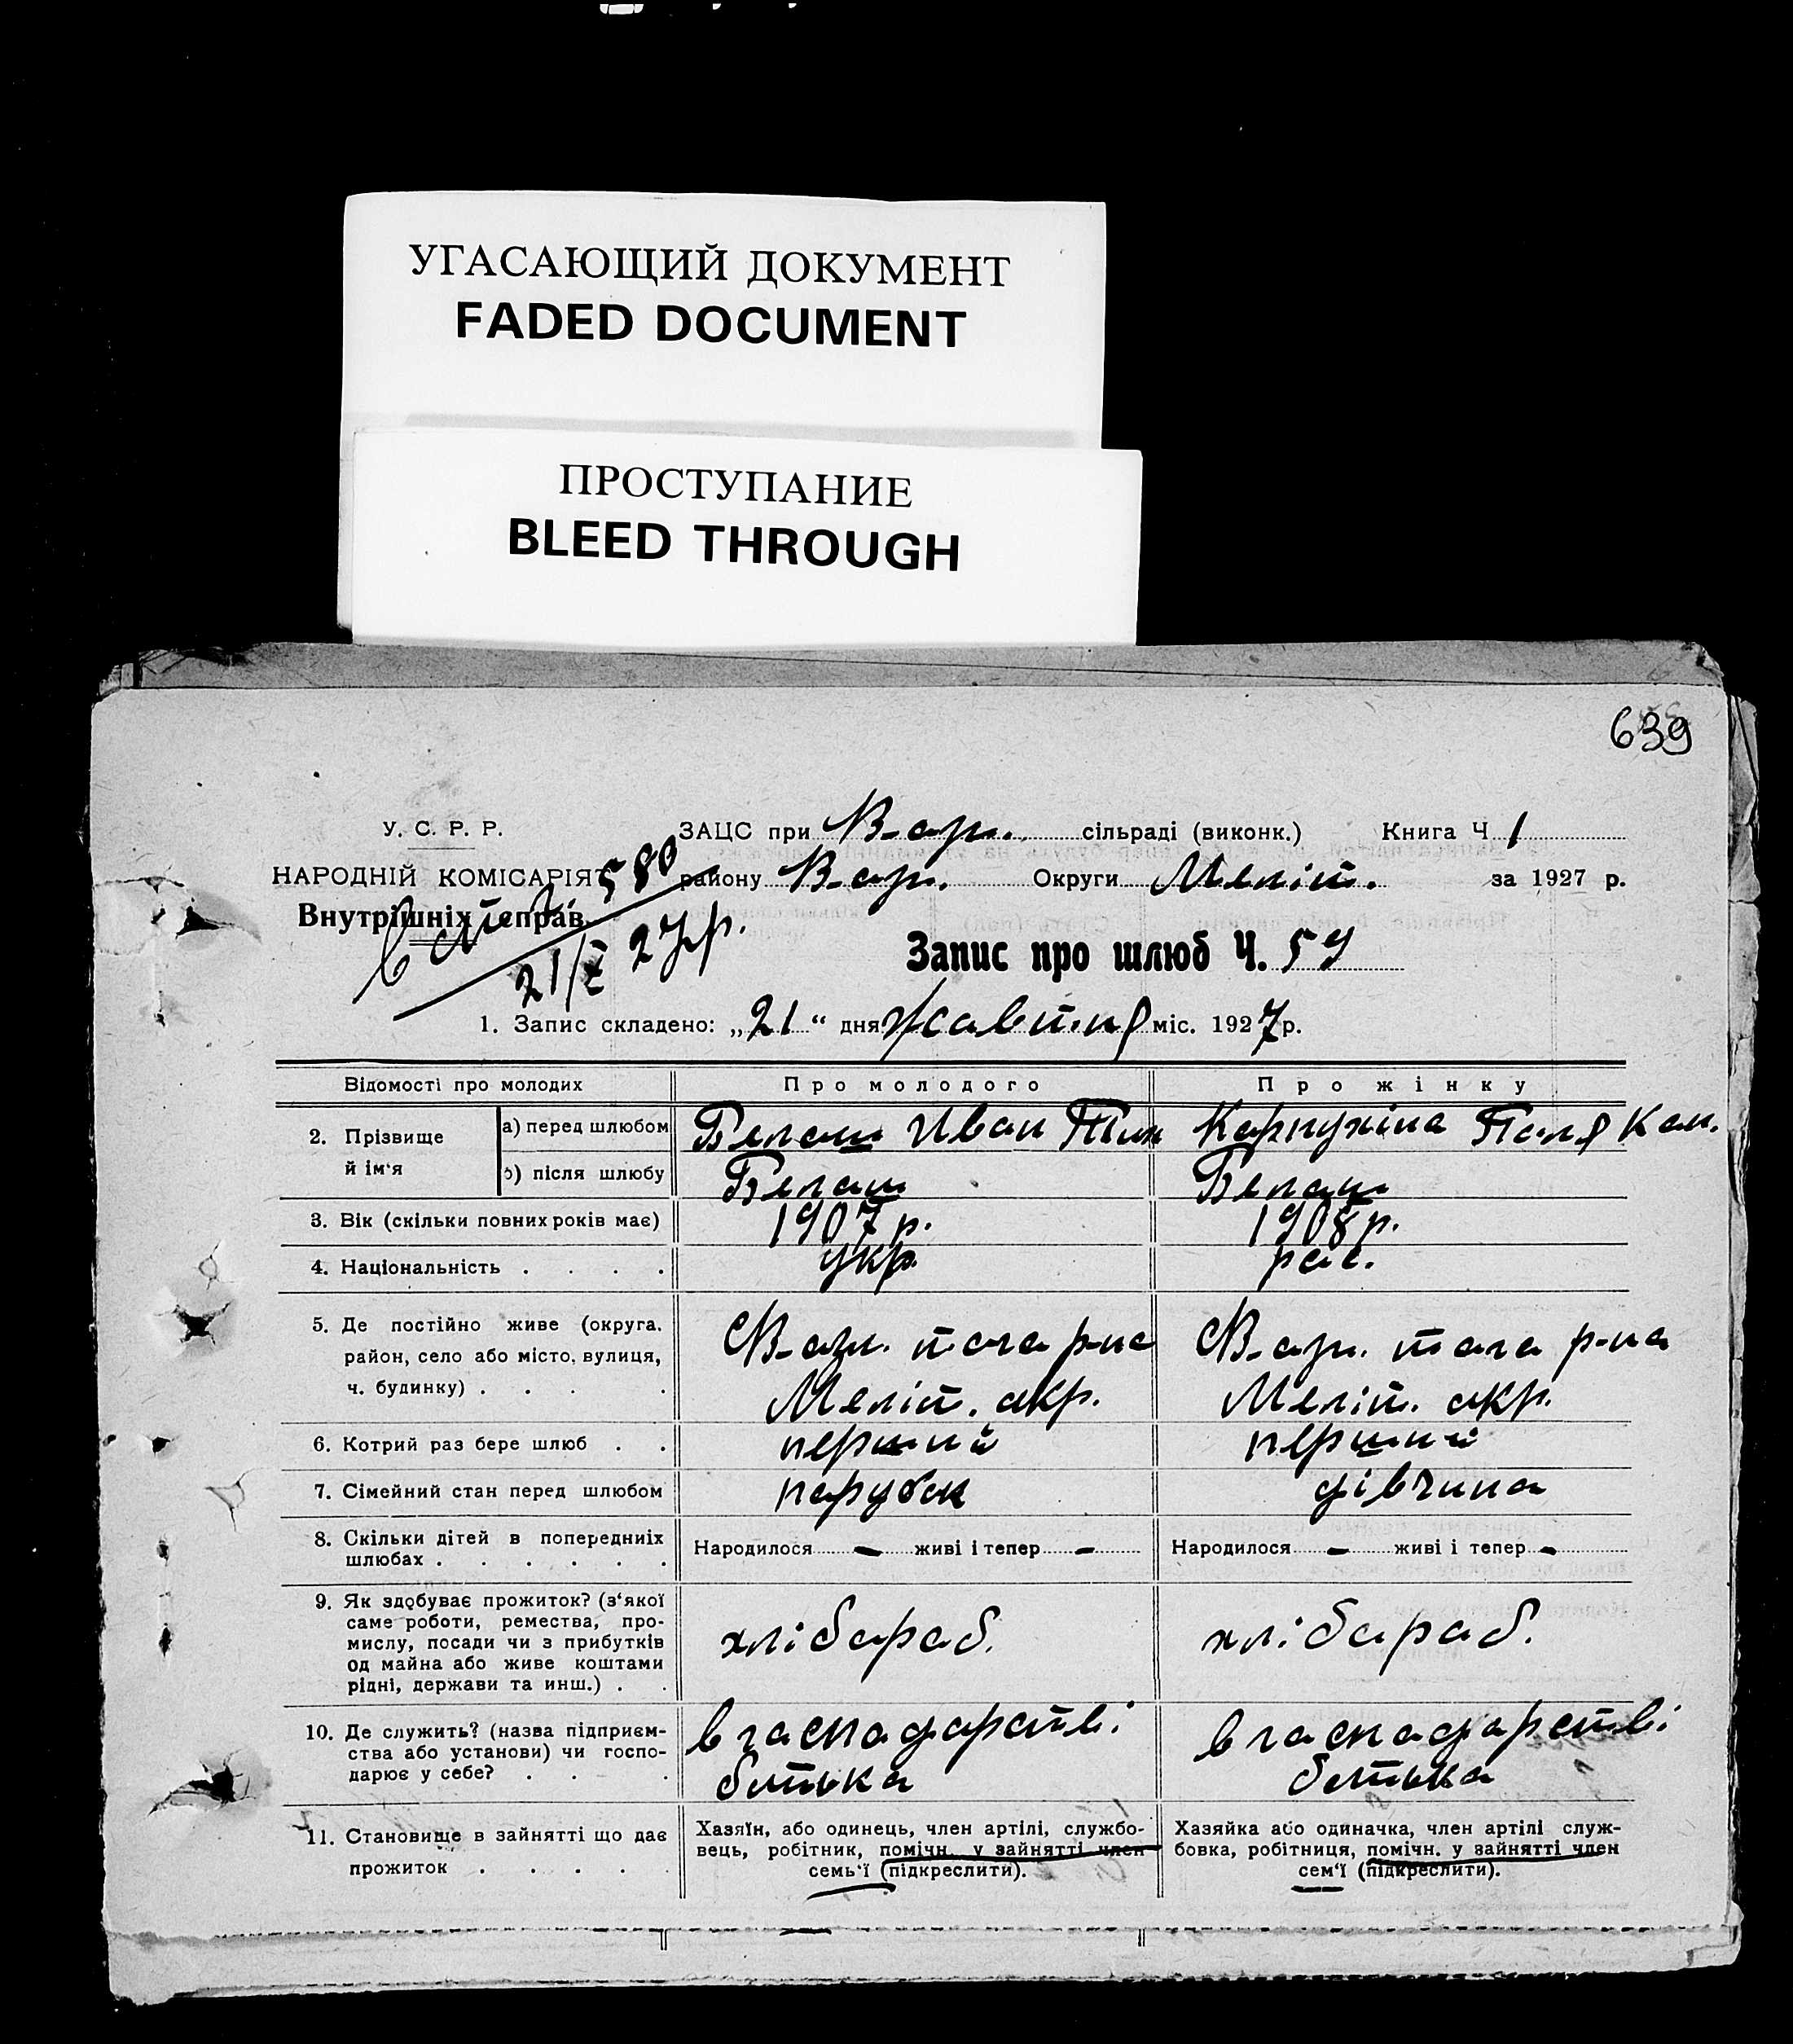 УГАСАЮЩИЙ ДОКУМЕНТ
FADED DOCUMENT
ПРОСТУПАНИЕ
BLEED THROUGH
639
У. С. Р. Р.
НАРОДНІЙ КОМІСАРІЯТ
Внутрішніх справ.
580
21/X 27р.
ЗАЦС при В-аγл. сільраді (виконк.) Книга Ч. 1
району Округи Меліт. за 1927 р.
Запис про шлюб Ч. 59
1. Запис складено: „21“ дня Жавтня міс. 1927 р.
Відомості про молодих Про молодого Про жінку
2. Прізвище й ім‘я
а) перед шлюбом Белаш Иван Карпухіна Паля
б) після шлюбу Белаш Белаш
3. Вік (скільки повних років має) 1907 р. 1908 р.
4. Національність . . . . укр. рас.
5. Де постійно живе (округа, район, село або місто, вулиця, ч. будинку) . . . .
тага р-на Меліт. акр.
тага р-на Меліт. акр.
6. Котрий раз бере шлюб . . перший перший
7. Сімейний стан перед шлюбом парубок дівчина
8. Скільки дітей в попередниіх шлюбах . . . . . .
Народилося - живі і тепер -
Народилося - живі і тепер -
9. Як здобуває прожиток? (з‘якої саме роботи, ремества, промислу, посади чи з прибутків од майна або живе коштами рідні, держави та инш.) . .
хлібараб. хлібараб.
10. Де служить? (назва підприємства або установи) чи господарює у себе? . . .
в гаспадарстві батька
в гаспадарстві батька
11. Становище в зайнятті що дає прожиток . . . . .
Хазяїн, або одинець, член артілі, службовець, робітник, помічн. у зайнятті член семь‘ї (підкреслити).
Хазяйка або одиначка, член артілі службовка, робітниця, помічн. у зайнятті член сем‘ї (підкреслити).